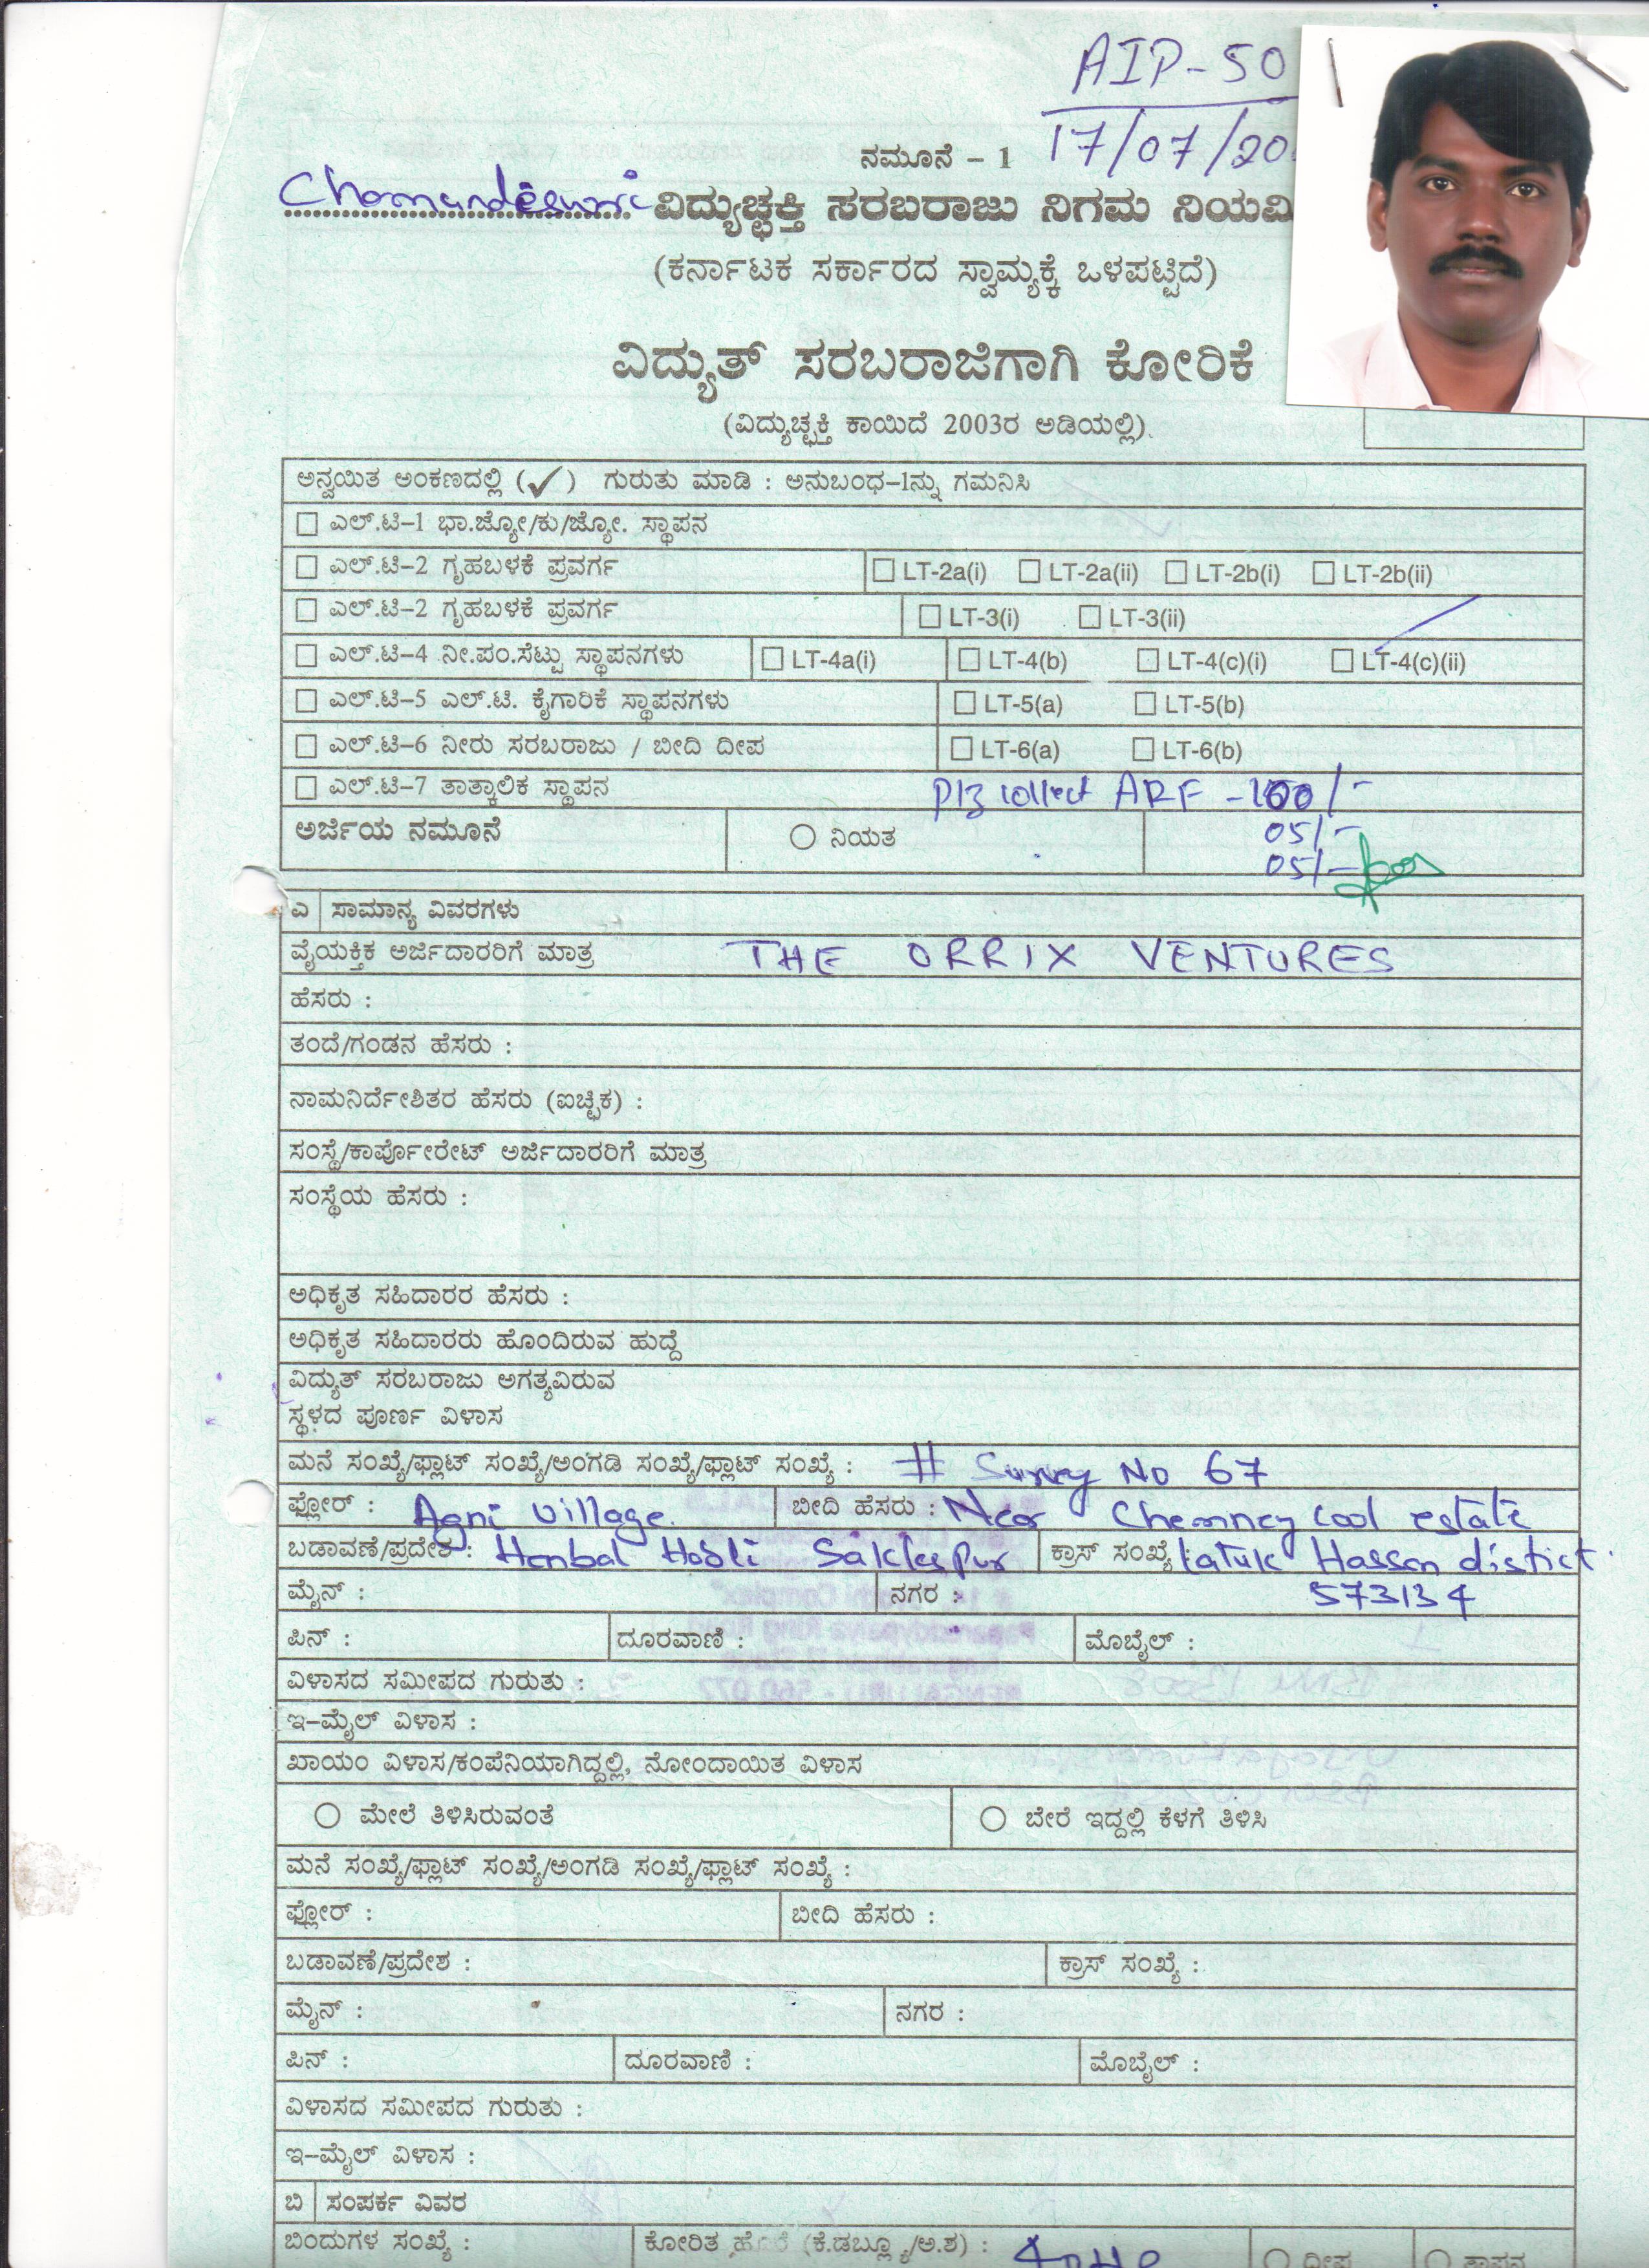 AIP-50
ನಮೂನೆ – 1 17/07/20
Chamundeswari ವಿದ್ಯುಚ್ಛಕ್ತಿ ಸರಬರಾಜು ನಿಗಮ ನಿಯಮಿ
(ಕರ್ನಾಟಕ ಸರ್ಕಾರದ ಸ್ವಾಮ್ಯಕ್ಕೆ ಒಳಪಟ್ಟಿದೆ)
ವಿದ್ಯುತ್ ಸರಬರಾಜಿಗಾಗಿ ಕೋರಿಕೆ
(ವಿದ್ಯುಚ್ಛಕ್ತಿ ಕಾಯಿದೆ 2003ರ ಅಡಿಯಲ್ಲಿ)
ಅನ್ವಯಿತ ಅಂಕಣದಲ್ಲಿ (✓) ಗುರುತು ಮಾಡಿ : ಅನುಬಂಧ–1ನ್ನು ಗಮನಿಸಿ
ಎಲ್.ಟಿ–1 ಭಾ.ಜ್ಯೋ/ಕು/ಜ್ಯೋ. ಸ್ಥಾಪನ
ಎಲ್.ಟಿ–2 ಗೃಹಬಳಕೆ ಪ್ರವರ್ಗ LT-2a(i) LT-2a(ii) LT-2b(i) LT-2b(ii)
ಎಲ್.ಟಿ–2 ಗೃಹಬಳಕೆ ಪ್ರವರ್ಗ LT-3(i) LT-3(ii)
ಎಲ್.ಟಿ–4 ನೀ.ಪಂ.ಸೆಟ್ಟು ಸ್ಥಾಪನಗಳು LT-4a(i) LT-4(b) LT-4(c)(i) LT-4(c)(ii)
ಎಲ್.ಟಿ–5 ಎಲ್.ಟಿ. ಕೈಗಾರಿಕೆ ಸ್ಥಾಪನಗಳು LT-5(a) LT-5(b)
ಎಲ್.ಟಿ–6 ನೀರು ಸರಬರಾಜು / ಬೀದಿ ದೀಪ LT-6(a) LT-6(b)
ಎಲ್.ಟಿ–7 ತಾತ್ಕಾಲಿಕ ಸ್ಥಾಪನ Plz collect ARF -100/-
ಅರ್ಜಿಯ ನಮೂನೆ ನಿಯತ 05/-
05/-
ಎ ಸಾಮಾನ್ಯ ವಿವರಗಳು
ವೈಯಕ್ತಿಕ ಅರ್ಜಿದಾರರಿಗೆ ಮಾತ್ರ THE ORRIX VENTURES
ಹೆಸರು :
ತಂದೆ/ಗಂಡನ ಹೆಸರು :
ನಾಮನಿರ್ದೇಶಿತರ ಹೆಸರು (ಐಚ್ಛಿಕ) :
ಸಂಸ್ಥೆ/ಕಾರ್ಪೋರೇಟ್ ಅರ್ಜಿದಾರರಿಗೆ ಮಾತ್ರ
ಸಂಸ್ಥೆಯ ಹೆಸರು :
ಅಧಿಕೃತ ಸಹಿದಾರರ ಹೆಸರು :
ಅಧಿಕೃತ ಸಹಿದಾರರು ಹೊಂದಿರುವ ಹುದ್ದೆ
ವಿದ್ಯುತ್ ಸರಬರಾಜು ಅಗತ್ಯವಿರುವ
ಸ್ಥಳದ ಪೂರ್ಣ ವಿಳಾಸ
ಮನೆ ಸಂಖ್ಯೆ/ಫ್ಲಾಟ್ ಸಂಖ್ಯೆ/ಅಂಗಡಿ ಸಂಖ್ಯೆ/ಫ್ಲಾಟ್ ಸಂಖ್ಯೆ : # Survey No 67
ಫ್ಲೋರ್ : Agni village ಬೀದಿ ಹೆಸರು : Near Chemney cool estate
ಬಡಾವಣೆ/ಪ್ರದೇಶ : Hanbal Hobli Saklespur ಕ್ರಾಸ್ ಸಂಖ್ಯೆ : taluk Hassan distict
ಮೈನ್ : ನಗರ : 573134
ಪಿನ್ : ದೂರವಾಣಿ : ಮೊಬೈಲ್ :
ವಿಳಾಸದ ಸಮೀಪದ ಗುರುತು :
ಇ–ಮೈಲ್ ವಿಳಾಸ :
ಖಾಯಂ ವಿಳಾಸ/ಕಂಪೆನಿಯಾಗಿದ್ದಲ್ಲಿ, ನೋಂದಾಯಿತ ವಿಳಾಸ
ಮೇಲೆ ತಿಳಿಸಿರುವಂತೆ ಬೇರೆ ಇದ್ದಲ್ಲಿ ಕೆಳಗೆ ತಿಳಿಸಿ
ಮನೆ ಸಂಖ್ಯೆ/ಫ್ಲಾಟ್ ಸಂಖ್ಯೆ/ಅಂಗಡಿ ಸಂಖ್ಯೆ/ಫ್ಲಾಟ್ ಸಂಖ್ಯೆ :
ಫ್ಲೋರ್ : ಬೀದಿ ಹೆಸರು :
ಬಡಾವಣೆ/ಪ್ರದೇಶ : ಕ್ರಾಸ್ ಸಂಖ್ಯೆ :
ಮೈನ್ : ನಗರ :
ಪಿನ್ : ದೂರವಾಣಿ : ಮೊಬೈಲ್ :
ವಿಳಾಸದ ಸಮೀಪದ ಗುರುತು :
ಇ–ಮೈಲ್ ವಿಳಾಸ :
ಬಿ ಸಂಪರ್ಕ ವಿವರ
ಬಿಂದುಗಳ ಸಂಖ್ಯೆ : ಕೋರಿತ ಹೊರೆ (ಕೆ.ಡಬ್ಲ್ಯೂ/ಅ.ಶ) : 40HP ದೀಪ ತಾಪನ